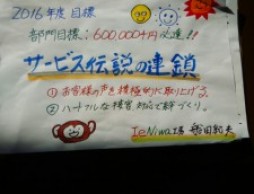 2016年度 目標
部門目標：600,000千円必達!!
サービス伝説の連鎖
①お客様の声を積極的に取り上げる。
②ハートフルな接客対応で絆づくり。